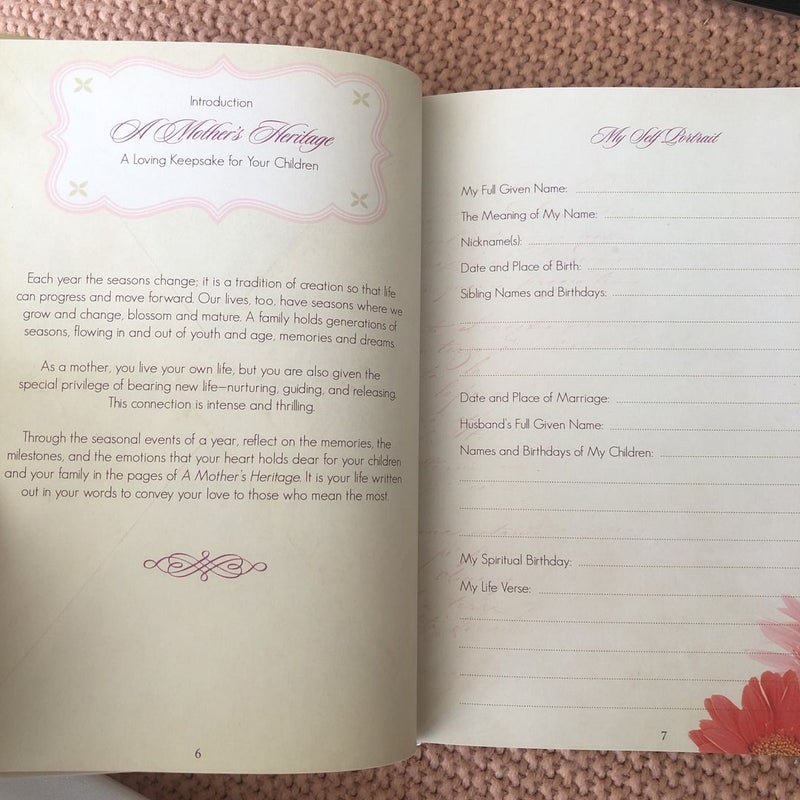 Introduction
A Mother's Heritage
A Loving Keepsake for Your Children
Each year the seasons change; it is a tradition of creation so that life
can progress and move forward. Our lives, too, have seasons where we
grow and change, blossom and mature. A family holds generations of
seasons, flowing in and out of youth and age, memories and dreams.
As a mother, you live your own life, but you are also given the
special privilege of bearing new life—nurturing, guiding, and releasing.
This connection is intense and thrilling.
Through the seasonal events of a year, reflect on the memories, the
milestones, and the emotions that your heart holds dear for your children
and your family in the pages of A Mother's Heritage. It is your life written
out in your words to convey your love to those who mean the most.
6
My Self Portrait
My Full Given Name:
The Meaning of My Name:
Nickname(s):
Date and Place of Birth:
Sibling Names and Birthdays:
Date and Place of Marriage:
Husband's Full Given Name:
Names and Birthdays of My Children:
My Spiritual Birthday:
My Life Verse:
7